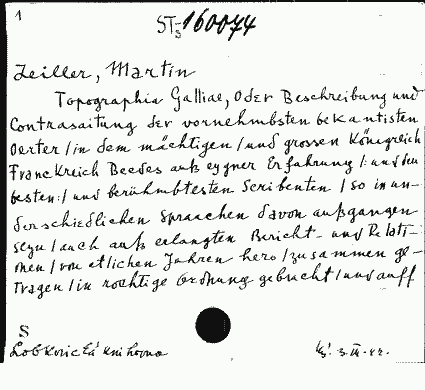 1
ST-S 160074
Zeiller, Martin
Topographia Galliae, Oder Beschreibung und
Contrasaitung der vornehmbsten bekantisten
Oerter / in dem mächtigen / und grossen Königreich
Franckreich Beedes auß eygner Erfahrung /: und den
besten :/ und berühmbtesten Scribenten / so in un-
derschiedlichen Spraachen davon außgangen
seyn / auch auß erlangten Bericht- und Relati-
onen / von etlichen Jahren hero / zusammen ge-
tragen / in richtige Ordnung gebracht / und auff
S
Lobkovická knihovna